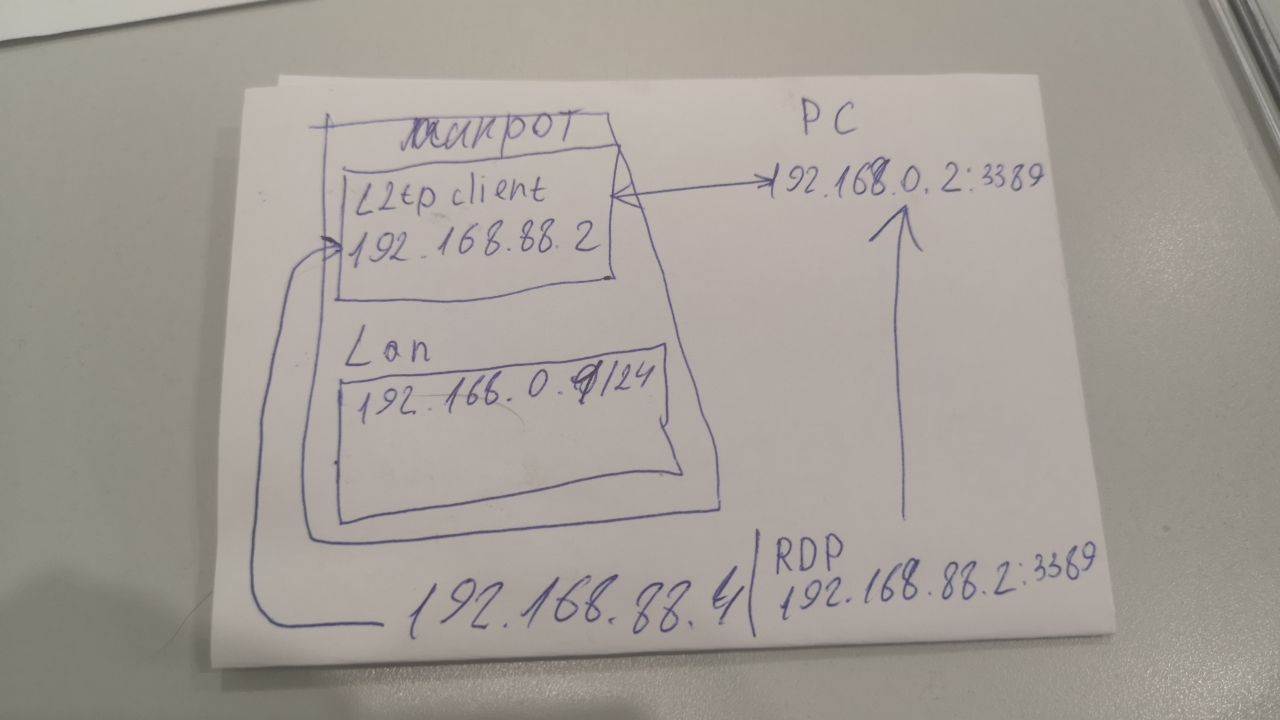 микрот
L2tp client
192.168.88.2
Lan
192.168.0.1/24
PC
192.168.0.2:3389
192.168.88.4
RDP
192.168.88.2:3389